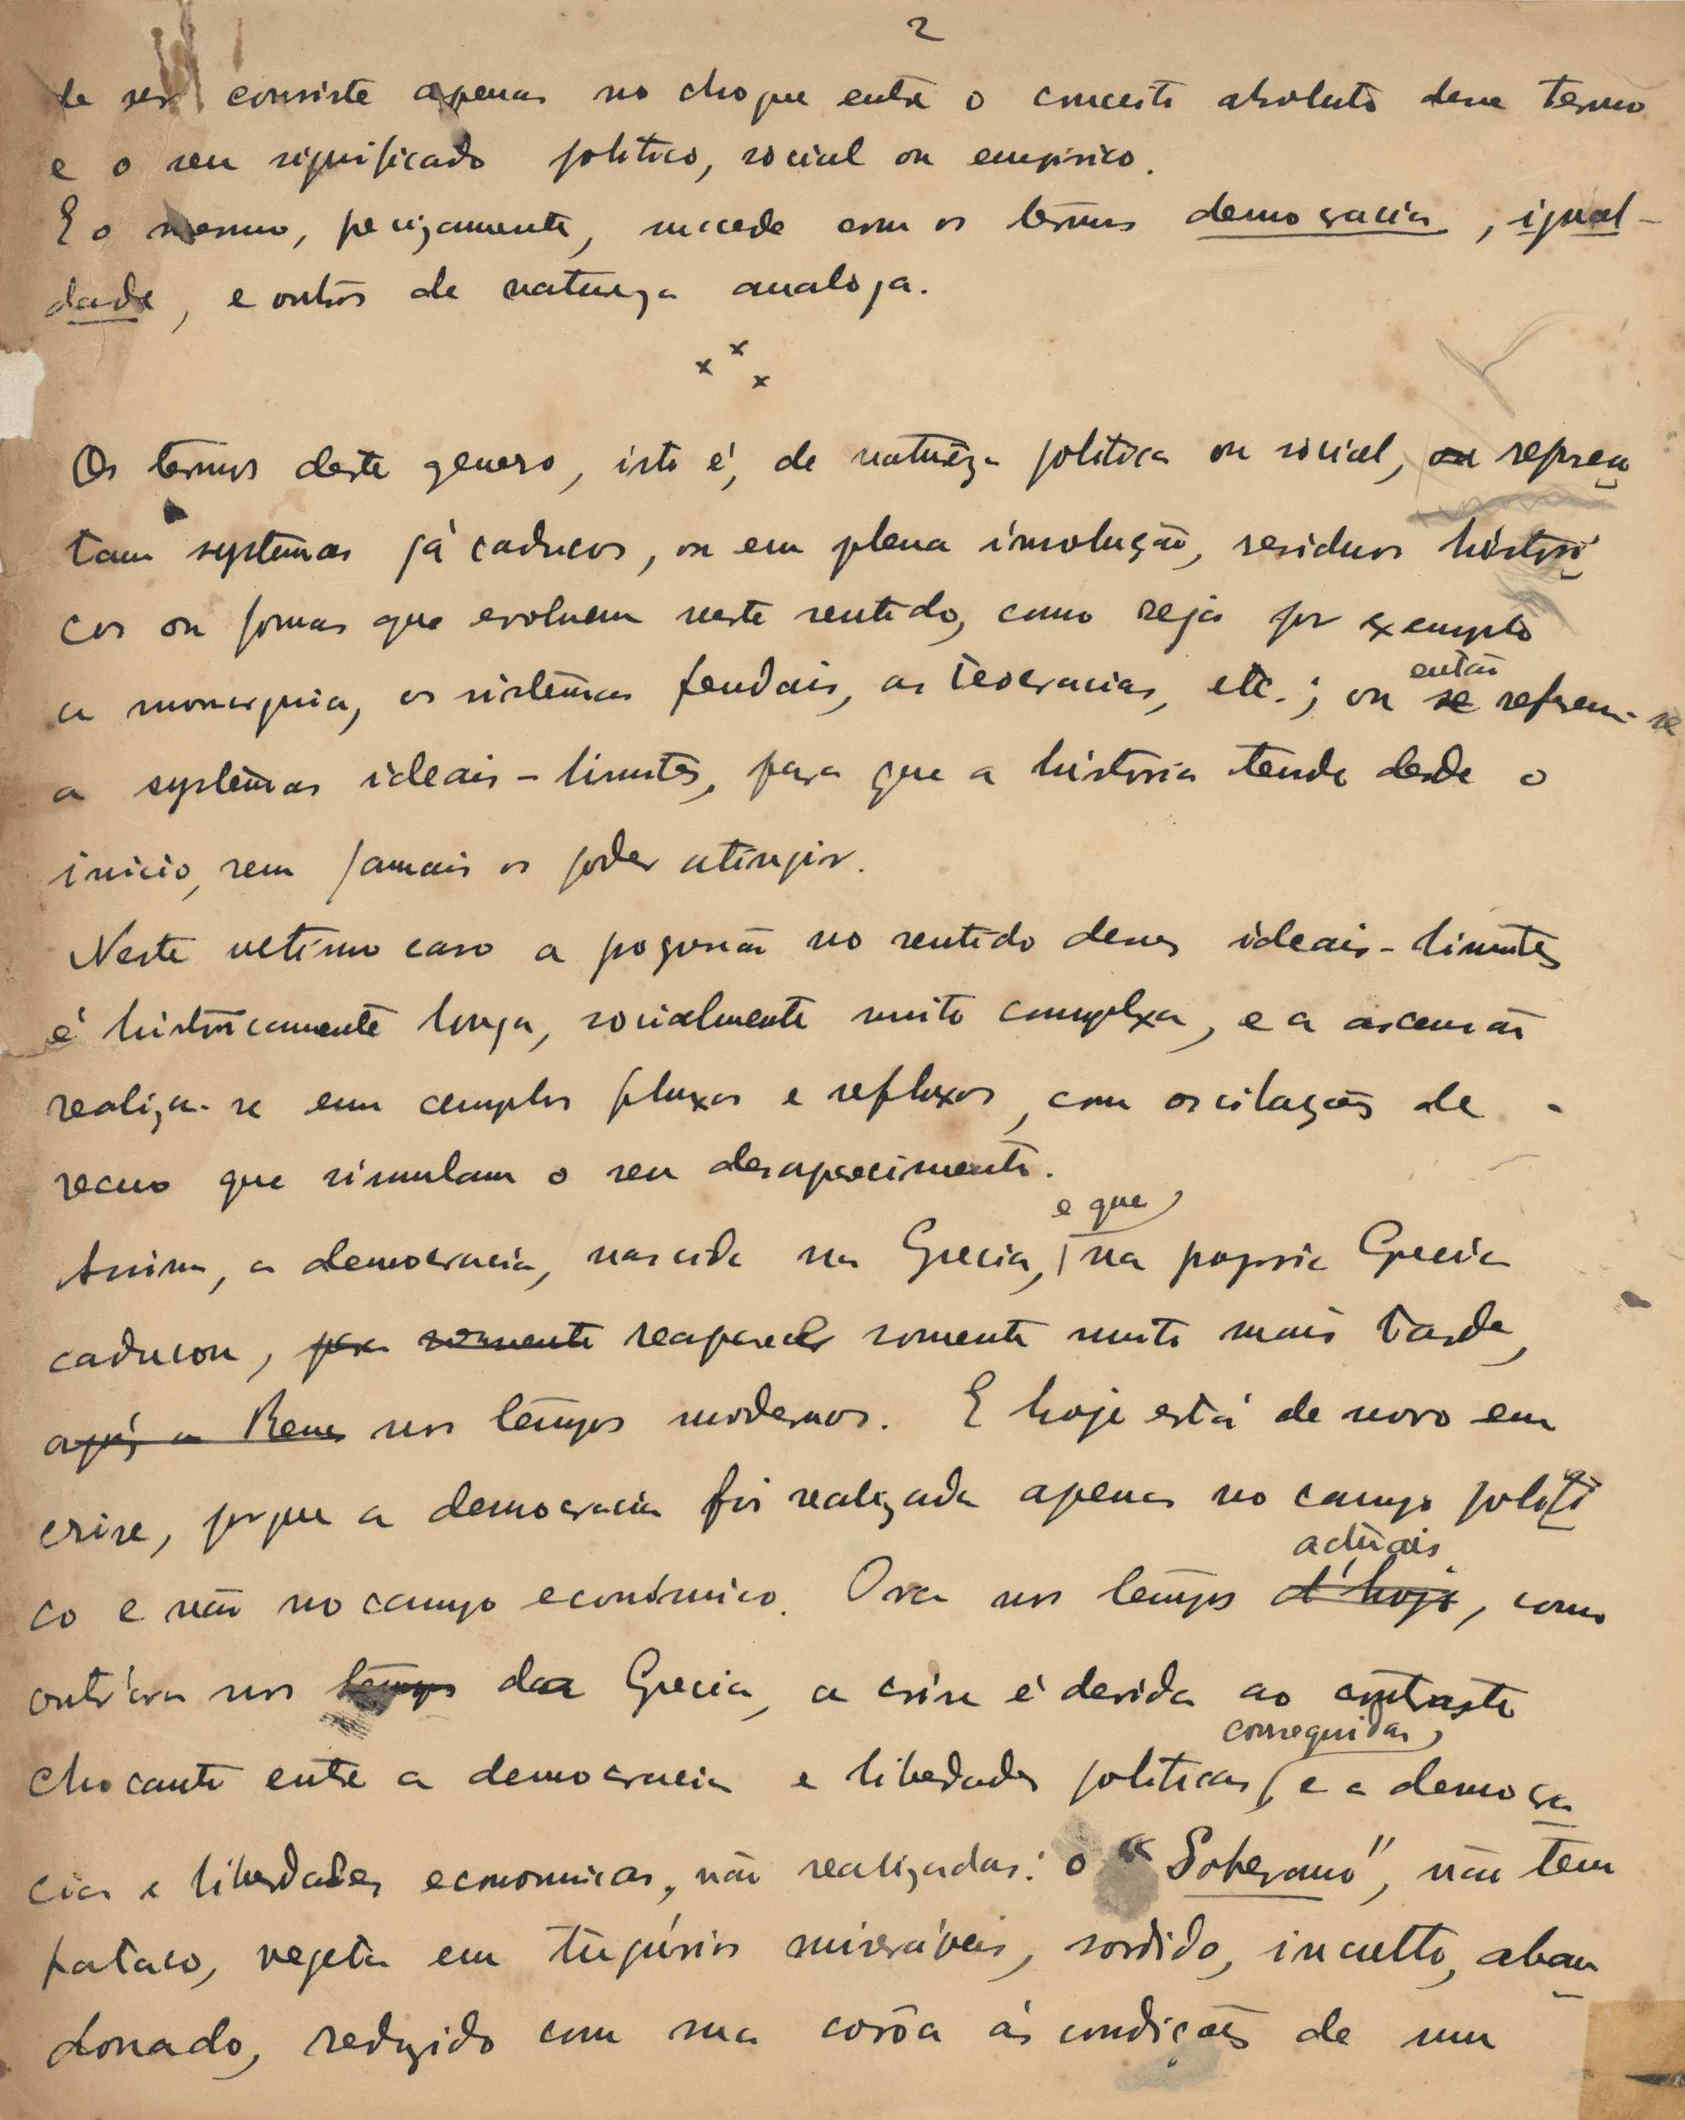 2
de ser consiste apenas no choque entre o conceito absoluto desse termo
e o seu significado politico, social ou empirico.
E o mesmo, precizamente, succede com os termos democracia, igual-
dade, e outros de natureza analoga.
x x x
Os termos deste genero, isto é, de natureza politica ou social, ou represen
tam systemas já caducos, ou em plena involução, residuos histori
cos ou formas que evoluem neste sentido, como seja por exemplo
então
a monarquia, os sistemas feudais, as teocracias, etc.; ou se referem-se
a systemas ideais-limites, para que a historia tende desde o
inicio, sem jamais os poder atingir.
Neste ultimo caso a progressão no sentido desses ideais-limites
é históricamente longa, socialmente muito complexa, e a ascensão
realiza-se em amplos fluxos e refluxos, com oscilações de
recuo que simulam o seu desaparecimento.
e que,
Assim, a democracia, nascida na Grecia, na propria Grecia
caducou, para somente reaparecer somente muito mais tarde,
após a Renas nos tempos modernos. E hoje está de novo em
crise, porque a democracia foi realizada apenas no campo politi
co e não no campo económico. Ora nos tempos d'hoje, como
actuais
outr'ora nos tempos da Grecia, a crise é devida ao contraste
conseguidas,
chocante entre a democracia e liberdades politicas, e a democra
cia e liberdades economicas, não realizadas: o "Soberano", não tem
pataco, vegeta em tugúrios miseráveis, sordido, inculto, aban
donado, reduzido com sua corôa ás condições de um